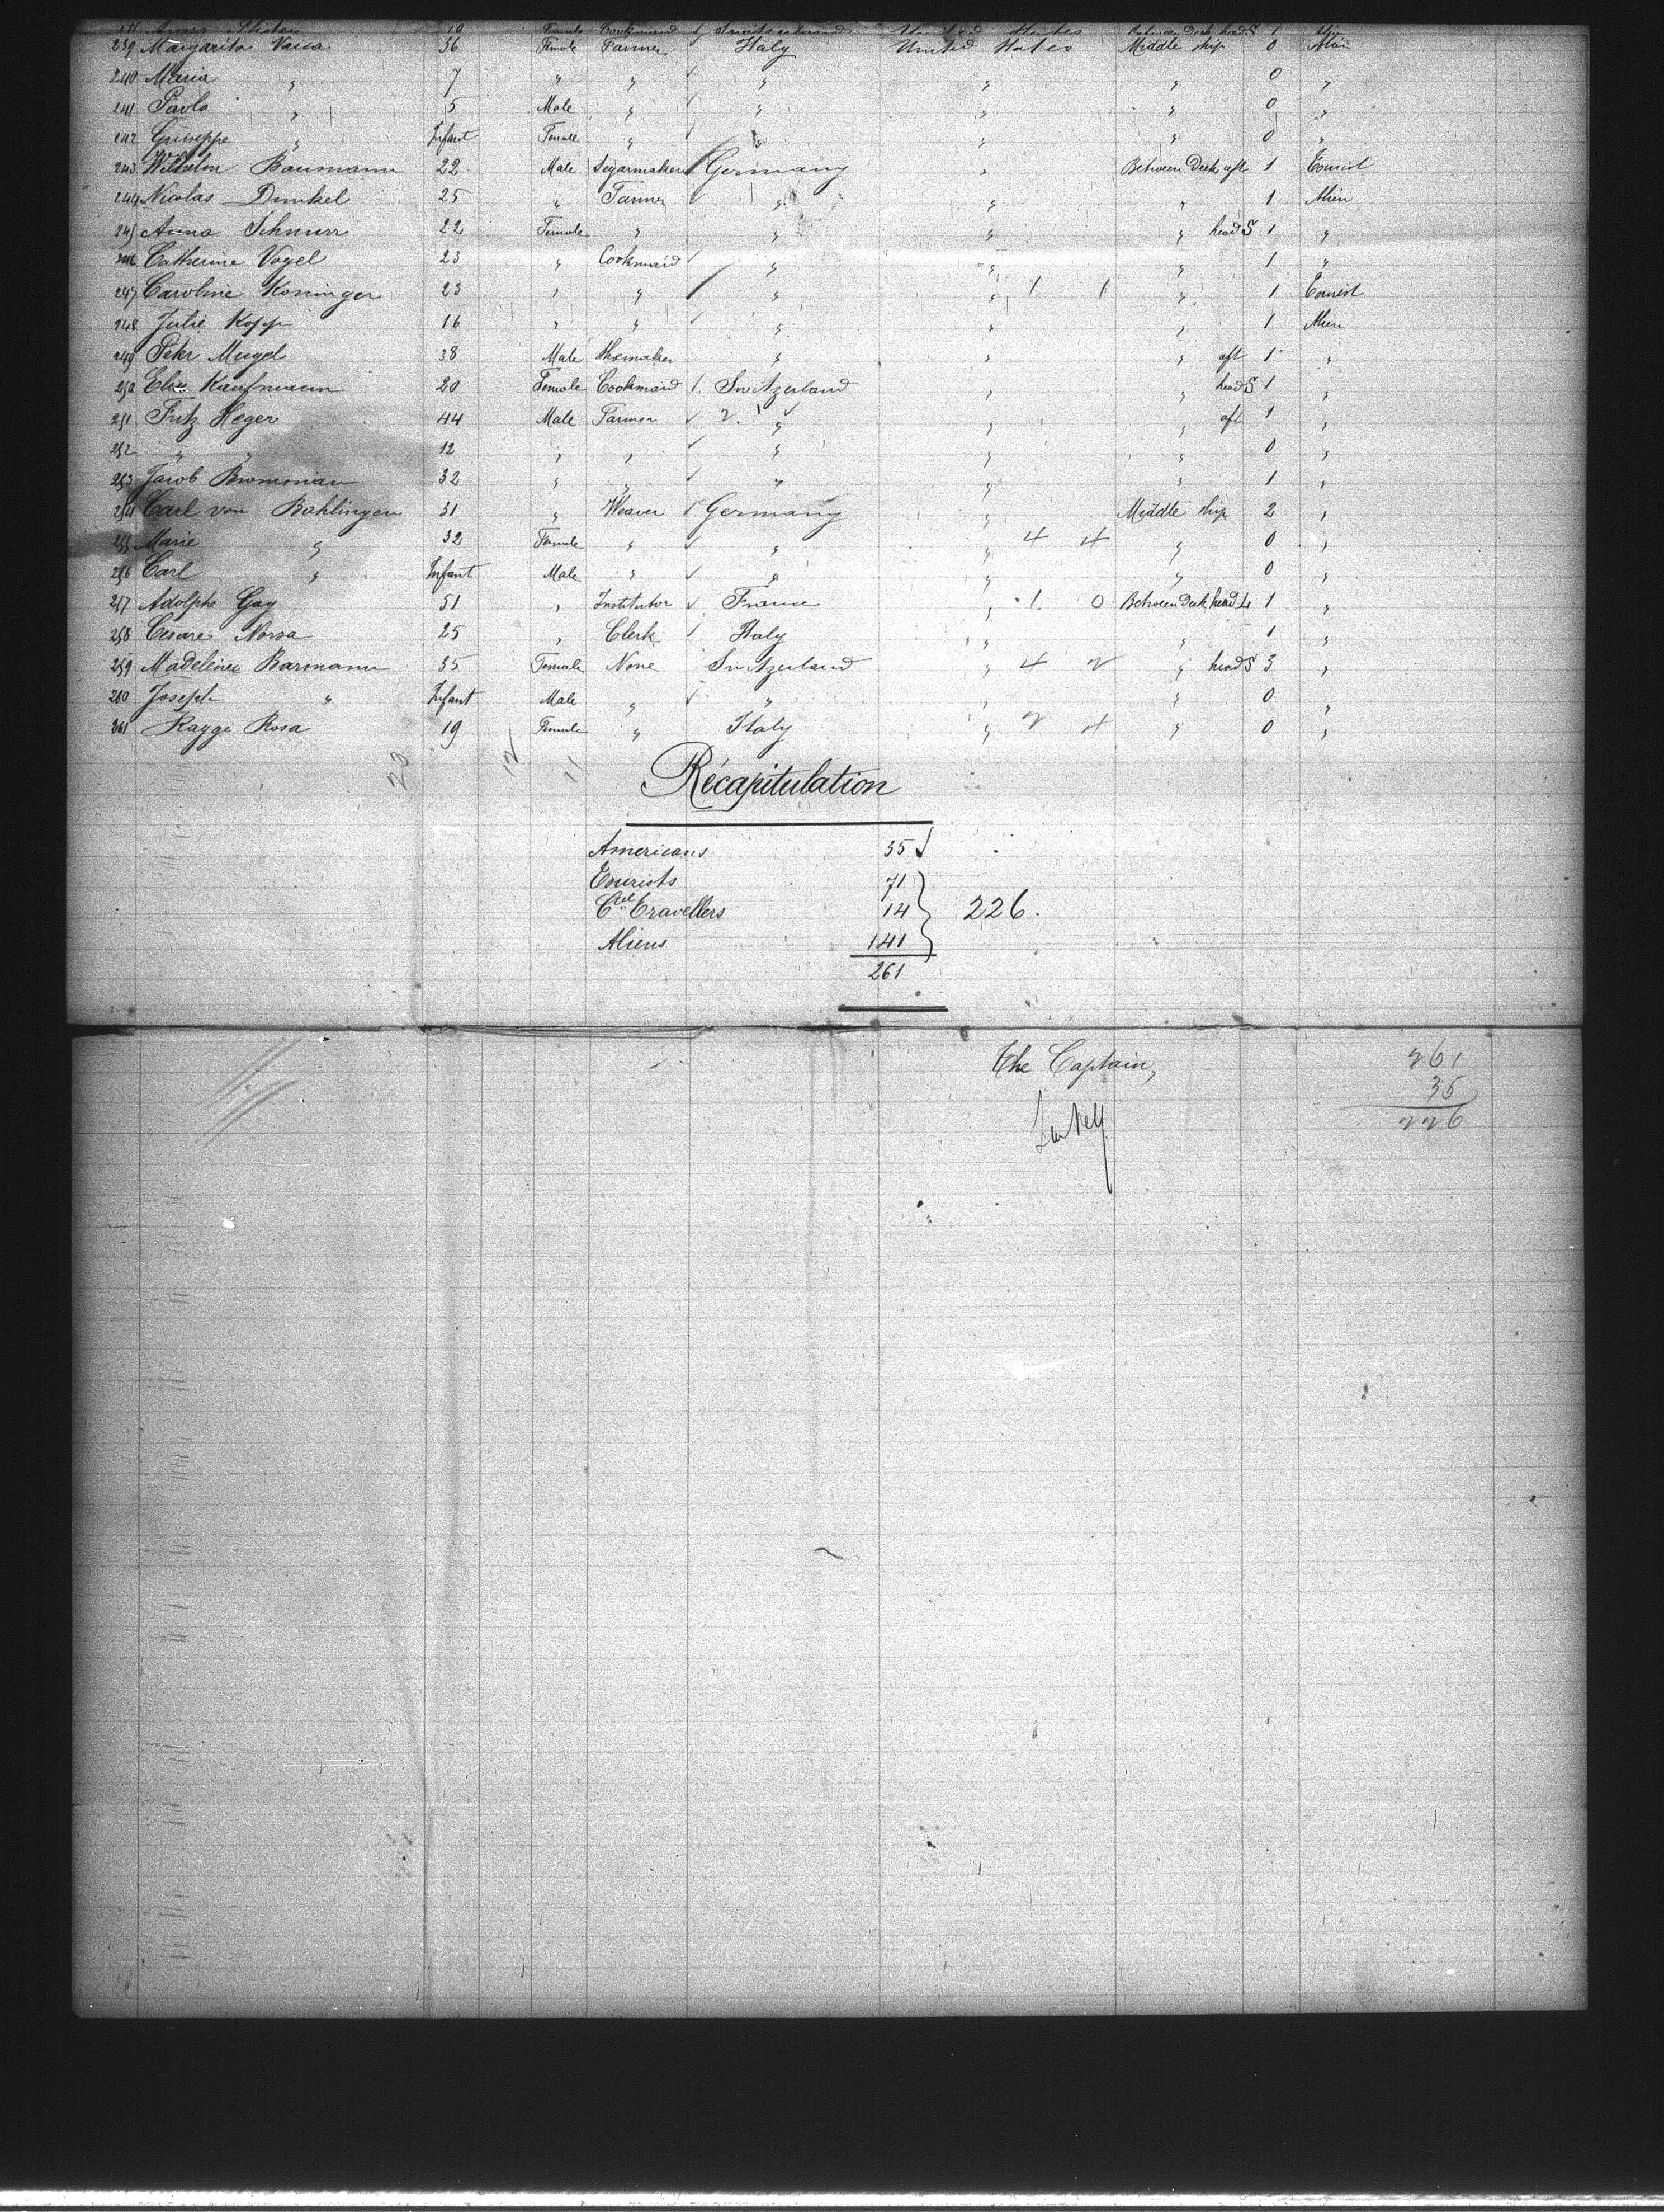 Female Cookmaid Switzerland United States 1
239 Margarita Vacca 36 Female Farmer Italy United States Middle ship 0 Alien
240 Maria " 7 " " " " " 0 "
241 Paolo " 5 Male " " " " 0 "
242 Giuseppe " Infant Female " " " " 0 "
243 Wilhelm Baumann 22 Male Segarmaker Germany " Between Deck aft 1 Tourist
244 Nicolas Dunkel 25 " Farmer " " " 1 Alien
245 Anna Schnurr 22 Female " " " " head S 1 "
246 Catherine Vogel 23 " Cookmaid " " " 1 "
247 Caroline Koninger 23 " " " " 1 1 " 1 Tourist
248 Julie Kopp 16 " " " " " 1 Alien
249 Peter Mugel 38 Male Shomaker " " " aft 1 "
250 Elise Kaufmann 20 Female Cookmaid Switzerland " " head S 1 "
251 Fritz Heger 44 Male Farmer 2. " " " aft 1 "
252 " " 12 " " " " " 0 "
253 Jacob 32 " " " " " 1 "
254 Carl von Bohlingen 31 " Weaver Germany " Middle ship 2 "
255 Marie " 32 Female " " " 4 4 " 0 "
256 Carl " Infant Male " " " " 0 "
257 Adolphe Gay 51 " Institutor France " 1 0 Between Deck head L 1 "
258 Cesare Norsa 25 " Clerk Italy " " 1 "
259 Madeleine Barmann 35 Female None Switzerland " 4 2 " head S 3 "
260 Joseph " Infant Male " " " 0 "
261 Raggi Rosa 19 Female " Italy " 2 4 " 0 "
20 12 11
Récapitulation
Americans 35
Tourists 71
Cial Travellers 14 226.
Aliens 141
261
The Captain, 261
35
226